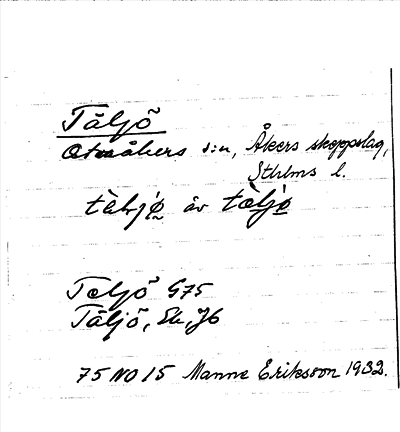 Täljö
Össåkers s:n, Åkers skeppslag,
Sthlms l.
tàl̨jø̀ äv tæ̀ljø̀
Teljö G75
Täljö, Sk, Jb
75 NO 15 Manne Eriksson 1932.